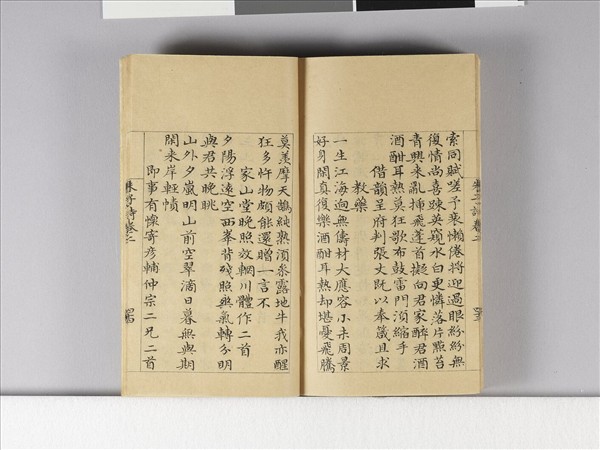 索同賦嗟予衰懶倦將迎過眼紛紛無
復情尚喜疎英窺水白更憐落片點苔
青興來亂插飛蓬首擬向君家醉君酒
酒酣耳熱莫狂歌布鼓雷門須縮手
借韻呈府判張丈既以奉箴且求
教藥
一生江海迥無儔材大應容小未周景
好身閑真復樂酒酣耳熱却堪憂飛騰
莫羨摩天鵠純熟須參露地牛我亦醒
狂多忤物頗能還贈一言不
家山堂晚照效輞川體作二首
夕陽浮遠空西峯背殘照爽氣轉分明
與君共晚眺
山外夕嵐明山前空翠滴日暮無與期
閑來岸輕幘
即事有懷寄彥輔仲宗二兄二首